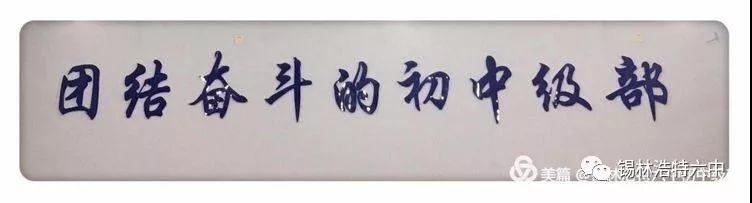 团结奋斗的初中级部
锡林浩特六中
美篇